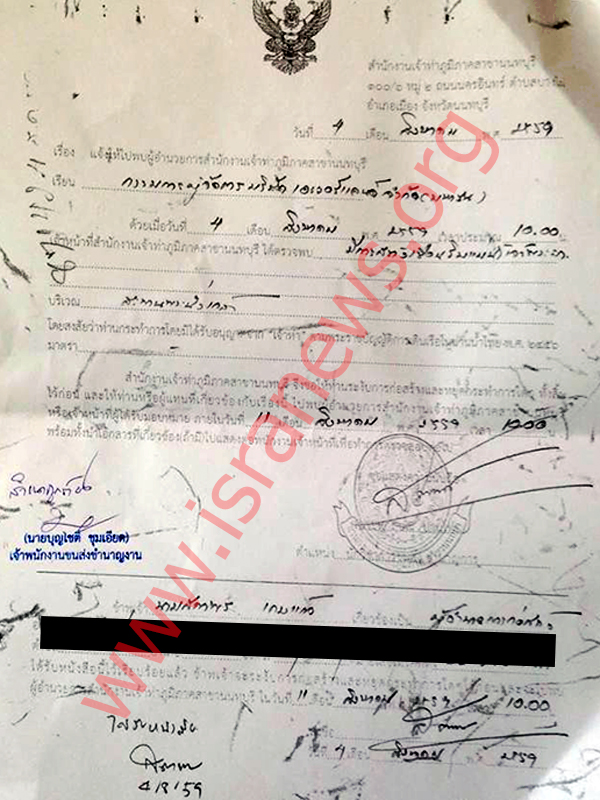 สำนักงานเจ้าท่าภูมิภาคสาขานนทบุรี
๑๐๐/๖ หมู่ ๒ ถนนนครอินทร์ ตำบลบางไผ่
อำเภอเมือง จังหวัดนนทบุรี
วันที่ 4 เดือน สิงหาคม พ.ศ. ๒๕๕๙
เรื่อง แจ้งให้ไปพบผู้อำนวยการสำนักงานเจ้าท่าภูมิภาคสาขานนทบุรี
เรียน กรรมการผู้จัดการบริษัท เอเวอร์แลนด์ จำกัด (มหาชน)
ด้วยเมื่อวันที่ 4 เดือน สิงหาคม พ.ศ. ๒๕๕๙ เวลาประมาณ 10.00 น.
เจ้าหน้าที่สำนักงานเจ้าท่าภูมิภาคสาขานนทบุรี ได้ตรวจพบ
บริเวณ สะพานพระนั่งเกล้า
โดยสงสัยว่าท่านกระทำการโดยมิได้รับอนุญาตจาก "เจ้าท่า" ตามพระราชบัญญัติการเดินเรือในน่านน้ำไทย พ.ศ. ๒๔๕๖
มาตรา
สำนักงานเจ้าท่าภูมิภาคสาขานนทบุรี จึงขอให้ท่านระงับการก่อสร้างและหยุดกระทำการใดๆ ทั้งสิ้น
ไว้ก่อน และให้ท่านหรือผู้แทนที่เกี่ยวข้องกับเรื่องนี้ ไปพบผู้อำนวยการสำนักงานเจ้าท่าภูมิภาคสาขานนทบุรี
หรือเจ้าหน้าที่ผู้ได้รับมอบหมาย ภายในวันที่ 11 เดือน สิงหาคม พ.ศ. ๒๕๕๙ เวลา 10.00
พร้อมทั้งนำเอกสารที่เกี่ยวข้อง(ถ้ามี)ไปแสดงต่อพนักงานเจ้าหน้าที่เพื่อทำการตรวจสอบ
สำเนาถูกต้อง
(นายบุญโชติ์ ชุมเอียด)
เจ้าพนักงานขนส่งชำนาญงาน
ตำแหน่ง
ข้าพเจ้า เกี่ยวข้องเป็น
ได้รับหนังสือนี้ไว้เรียบร้อยแล้ว ข้าพเจ้าจะระงับการก่อสร้างและหยุดกระทำการใดๆ ไว้ก่อนและจะไปพบ
ผู้อำนวยการสำนักงานเจ้าท่าภูมิภาคสาขานนทบุรี ในวันที่ 11 เดือน สิงหาคม ๒๕๕๙ 10.00
ลงชื่อ
วันที่ 4 เดือน สิงหาคม ๒๕๕๙
ได้รับหนังสือ
4/8/59
www.isranews.org